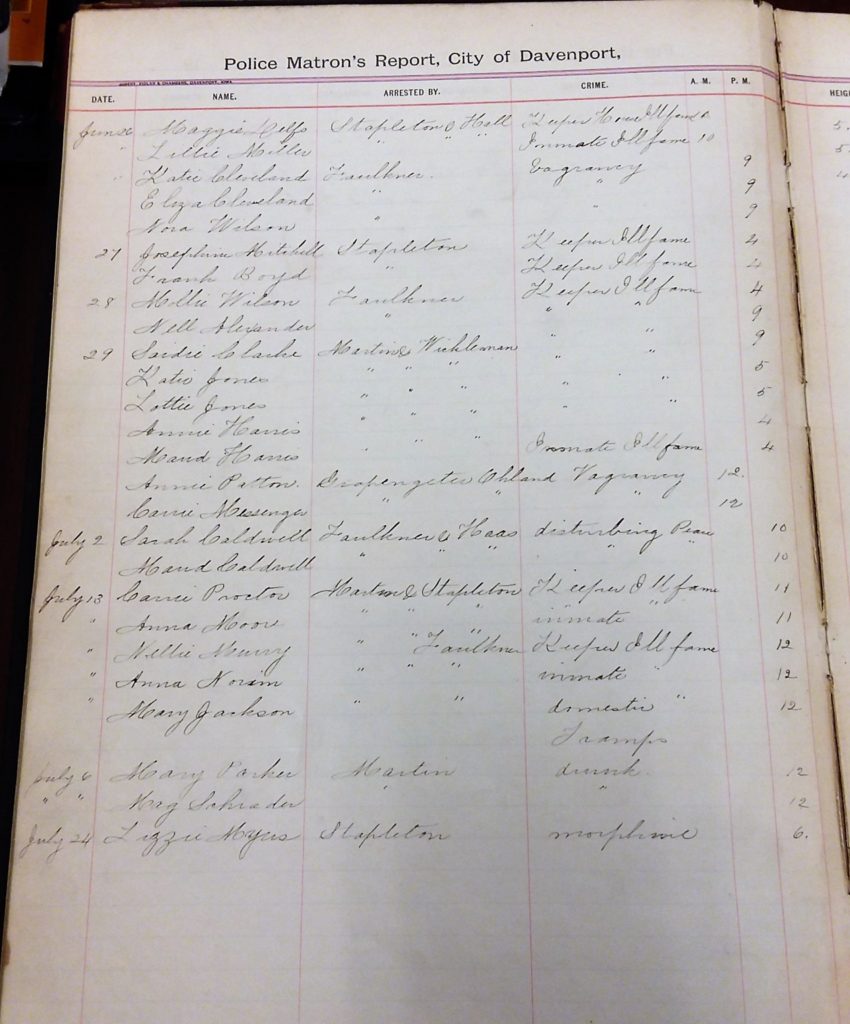 Police Matron's Report, City of Davenport,
DATE. NAME. ARRESTED BY. CRIME. A. M. P. M. HEIGH
June 26 Maggie Stapleton & Hall Keeper House Ill fame 5.
Lillie Miller " " " Inmate Ill fame 10 5
" Katie Cleveland Faulkner. Vagrancy 9
Eliza Cleveland " " 9
Nora Wilson " " 9
27 Josephine Mitchell Stapleton Keeper Ill fame 4
Frank Boyd " Keeper Ill fame 4
28 Mollie Wilson Faulkner Keeper Ill fame 4
Nell Alexander " " " 9
29 Saidie Clarke Martin & Wichleman " " 9
Katie Jones " " " " " 5
Lottie Jones " " " " " 5
Annie Harris " " " 4
Maud Harris " " " Inmate Ill fame 4
Annie Patton. Ohland Vagrancy 12.
Carrie Messenger " " " 12
July 2 Sarah Caldwell Faulkner & Haas disturbing Peace 10
Maud Caldwell " " " " " 10
July 13 Carrie Proctor Martin & Stapleton Keeper Ill fame 11
" Anna Moore " " " inmate " " 11
" Nellie Murry " " Faulkner Keeper Ill fame 12
" Anna " " " inmate " 12
" Mary Jackson " " domestic " 12
Tramps
July 6 Mary Parker Martin drunk. 12
" " Meg Schrader " " 12
July 24 Lizzie Myers Stapleton morphine 6.